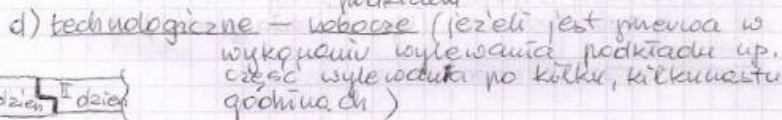 d) technologiczne – robocze (jeżeli jest przerwa w
wykonaniu wylewania podkładu np.
część wylewania po kilku, kilkunastu
dzień II dzień godzinach)